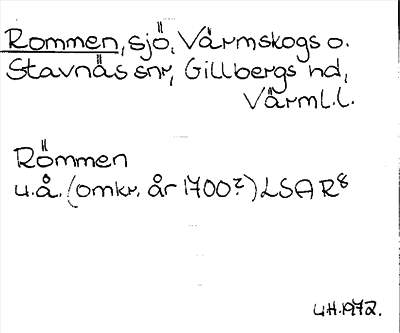 Rommen, sjö, Värmskogs o.
Stavnäs snr, Gillbergs hd,
Värml.l.
Römmen
u.å. (omkr. år 1700?) LSA R8
UH.1972.